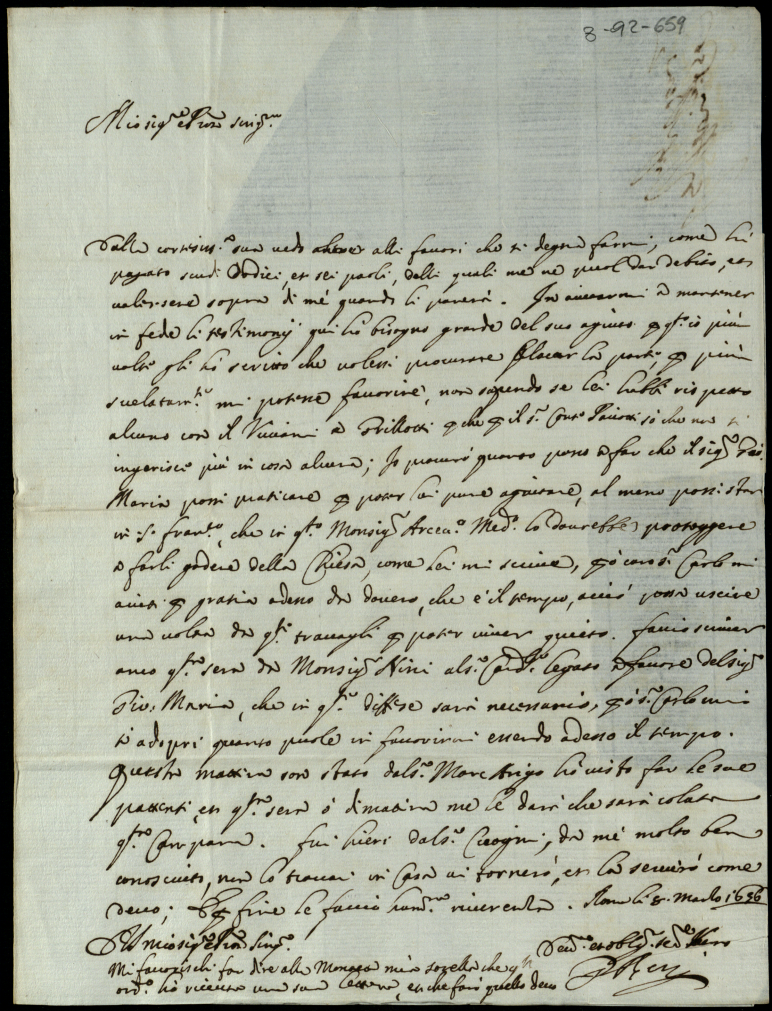 8-92-659
Mio sig.re e Pron sing.mo
Dalla cortesiss.a sua vedo alli favori che si degna farmi, come hà
pagato scudi dodici, et sei paoli, delli quali me ne puol dar debito, et
valersene sopra di mè quando li parerà. In aiutarmi à mantener
in fede li testimonij qui hò bisogno grande del suo agiuto più
volte gli hò scritto che volessi procurare placar la parte, più
svelatam.te mi potesse favorire, non sapendo se lei habbi rispetto
alcuno con il Viviani è che il s.r Conte sò che non si
ingerisce più in cosa alcuna; Io procurò quanto posso far che il sig.r Gio:
Maria possi praticare poter lui pure agiutare, al meno possi star
in S. Fran.co, che in q.to Monsig.r Arceu.o lo dovrebbe proteggere
e farli godere della Chiesa, come lei mi scrive, però caro s.r Carlo mi
aiuti gratia adesso da dovero, che è il tempo, acciò possa uscire
una volta da q.ti travagli poter viver quieto. faccio scriver
anco q.ta sera da Monsig.r Nini al s.r Card.le legato à favore del sig.r
Gio: Maria, che in q.te diffese sarà necessario, però s.r Carlo mio
si adopri quanto puole in favorirmi essendo adesso il tempo.
Questa mattina son stato dal s.r Marc Arigo hò visto far le sue
pattenti, et q.ta sera ò dimatina me le darà che sarà
q.ta Campana. fui hieri dal s.r Cicogni, da mè molto ben
conosciuto, non lo trovai in Casa vi tornerò, et la servirò come
devo; Et fine le faccio hum.a riverenza. Roma li 8 Marzo 1656
Al mio sig.re e Pron Sing.o
Dev.o et obblig. ser.re vero
Mi favorischi far dire alla Monaca mia sorella che
ord.o hò riceuto una sua lettera, et che farò quello devo